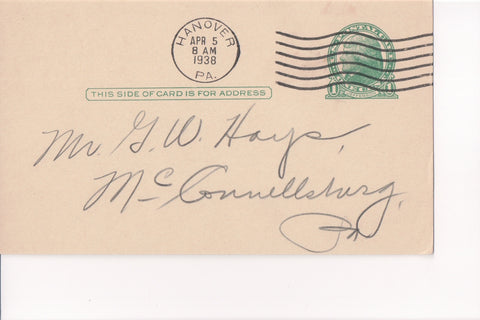 HANOVER
APR 5
8 AM
1938
PA.
THIS SIDE OF CARD IS FOR ADDRESS
Mr. G. W. Hays,
McConnellsburg,
Pa.